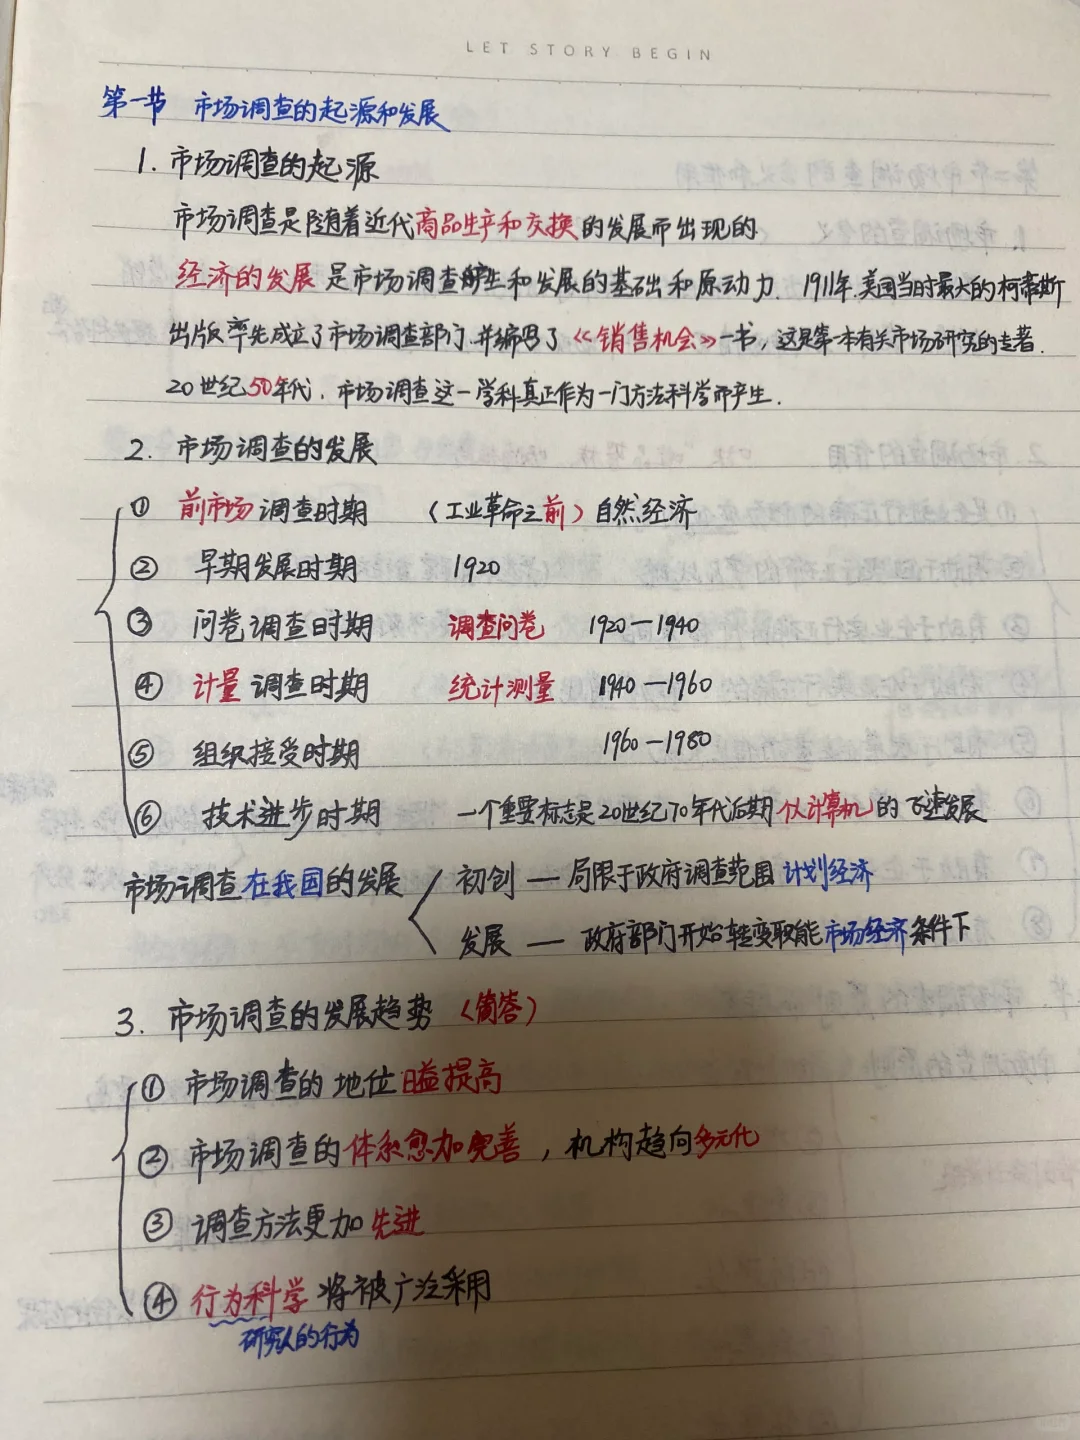 LET STORY BEGIN
第一节 市场调查的起源和发展
1. 市场调查的起源
市场调查是随着近代商品生产和交换的发展而出现的
经济的发展是市场调查产生和发展的基础和原动力. 1911年.美国当时最大的柯蒂斯
出版率先成立了市场调查部门.并编写了《销售机会》一书,这是第一本有关市场研究的专著.
20世纪50年代.市场调查这一学科真正作为一门方法科学而产生.
2. 市场调查的发展
① 前市场调查时期 (工业革命之前)自然经济
② 早期发展时期 1920
③ 问卷调查时期 调查问卷 1920—1940
④ 计量调查时期 统计测量 1940—1960
⑤ 组织接受时期 1960—1980
⑥ 技术进步时期 一个重要标志是20世纪70年代后期以计算机的飞速发展
市场调查在我国的发展 初创 — 局限于政府调查范围 计划经济
发展 — 政府部门开始转变职能市场经济条件下
3. 市场调查的发展趋势 (简答)
① 市场调查的地位日益提高
② 市场调查的体系愈加完善,机构趋向多元化
③ 调查方法更加先进
④ 行为科学将被广泛采用
研究人的行为